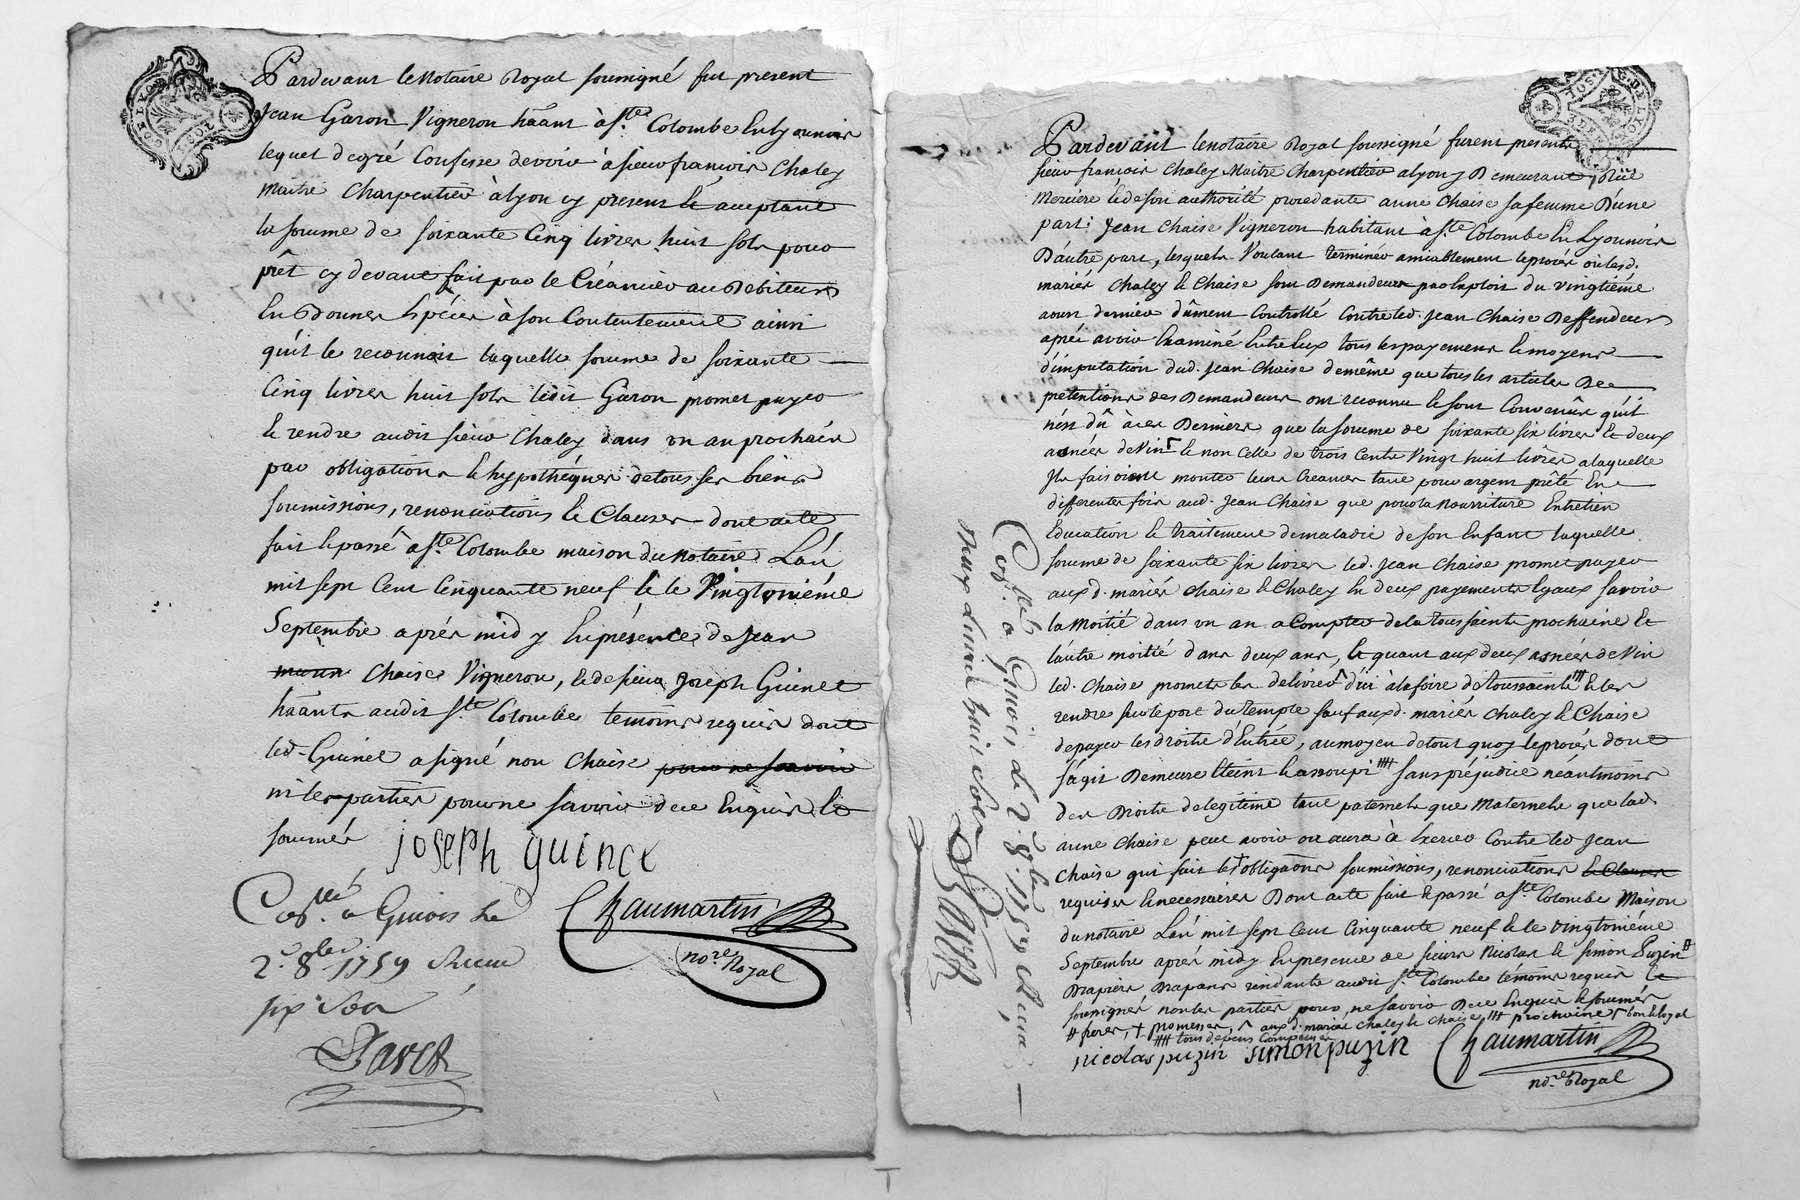 Pardevant le Notaire Royal soussigné fut present
Jean Garon Vigneron häänt à Ste. Colombe En Lyonnois
lequel de gré Confesse devoir à sieur françois Chaley
Maitre Charpentier à Lyon cy present & acceptant
la somme de soixante Cinq livres huit sols pour
prêt cy devant fait par le Créancier au Debiteur
En Bonnes Espéces à son Contentement ainsi
qu'il le reconnoit laquelle somme de soixante
Cinq livres huit sols ledit Garon promet payer
& rendre audit sieur Chaley dans un an prochain
par obligations & hypothéques de tous ses biens
soumissions, renonciations & Clauses dont acte
fait & passé à Ste. Colombe maison du Notaire L'an
mil sept Cent Cinquante neuf & le Vingtoniéme
Septembre aprés midy En présence de Jean
Chaise Vigneron, & de sieur Joseph Guinet
häants audit Ste. Colombe temoins requis dont
led. Guinet a signé non Chaise pour ne savoir
ni les parties pour ne savoir de ce Enquis &
sommés
joseph guinet
Chaumartin
nore. Royal
Collé a Givors Le
2e. 8bre 1759 Recu
six sols
Pardevant le Notaire Royal soussigné furent presents
sieur françois Chaley Maitre Charpentier a Lyon y Demeurant rüe
Merciére & de son authorité procedante anne Chaise sa femme D'une
part: Jean Chaise Vigneron habitant à Ste. Colombe En Lyonnois
D'autre part, lesquels Voulant terminer amiablement le procés où lesd.
mariés Chaley & Chaise sont Demandeurs par Exploit du vingtiéme
aoust dernier dûment Controllé Contre led. Jean Chaise Deffendeur
aprés avoir Examiné Entre Eux tous les payements & moyens
d'imputation dud. Jean Chaise de même que tous les articles Des
pretentions des Demandeurs ont reconnu & sont Convenûs qu'il
n'est dû à ces Derniers que la somme de soixante six livres & deux
asnées de Vin & non Celle de trois Cents Vingt huit livres a laquelle
Ils faisoient monter leurs Creances tant pour argent prêté En
differentes fois aud. Jean Chaise que pour la Nourriture Entretien
Education & traitement de maladie de son Enfant laquelle
somme de soixante six livres led. Jean Chaise promet payer
aux d. mariés Chaise & Chaley En deux payements Egaux savoir
la Moitié dans un an a Compter de la toussaints prochaine &
l'autre moitié dans deux ans, & quant aux deux asnées de Vin
led. Chaise promet les delivrer d'ici à la foire de toussaints & les
rendre sur le port du temple sauf aux d. mariés Chaley & Chaise
de payer les droits d'Entrée, au moyen de tout quoy le procés dont
s'agit Demeure Eteint & assoupi sans préjudice néantmoins
des Droits de legitime tant paternels que Maternels que lad.
anne Chaise peut avoir ou aura à Exercer Contre led. Jean
Chaise qui fait les obligaons soumissions, renonciations & Clauses
requises & necessaires Dont acte fait & passé a Ste. Colombe Maison
du Notaire L'an mil sept Cent Cinquante neuf & le vingtoniéme
Septembre aprés midy En presence de sieurs Nicolas & Simon Puzin
Drapiers Drapans residants audit Ste. Colombe témoins requis &
soussignés non les parties pour ne savoir De ce Enquis & sommés
# freres, + promesses, ^ aux d. mariés chaley & chaise, prochaine, bon & loyal
tous depens Compensés
nicolas puzin simon puzin
Chaumartin
nore. Royal
Collé a Givors le 2e. 8bre 1759 Recu